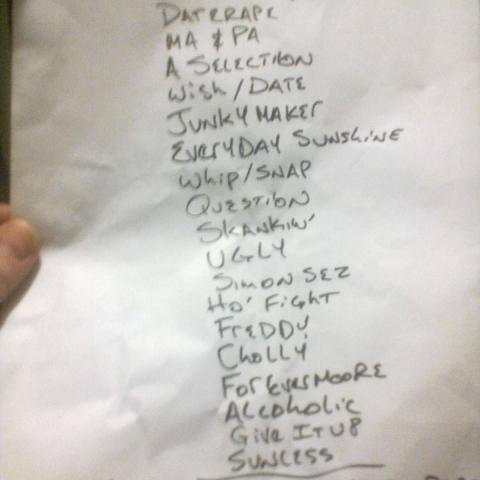 DATERAPE
MA & PA
A SELECTION
WISH/DATE
JUNKYMAKER
EVERYDAY SUNSHINE
WHIP/SNAP
QUESTION
SKANKIN'
UGLY
SIMON SEZ
HO' FIGHT
FREDDY
CHOLLY
FOREVERMOORE
ALCOHOLIC
GIVE IT UP
SUNLESS